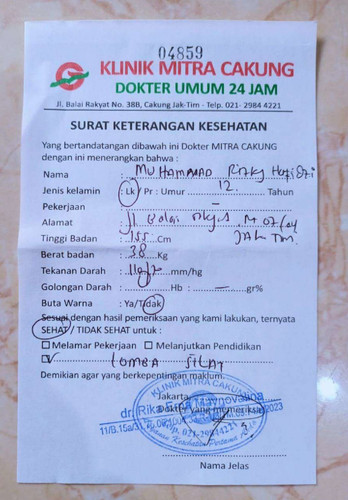 04859
KLINIK MITRA CAKUNG
DOKTER UMUM 24 JAM
Jl. Balai Rakyat No. 38B, Cakung Jak-Tim - Telp. 021- 2984 4221
SURAT KETERANGAN KESEHATAN
Yang bertandatangan dibawah ini Dokter MITRA CAKUNG
dengan ini menerangkan bahwa :
Nama : MUHAMMAD Rizky
Jenis kelamin : Lk / Pr : Umur 12 Tahun
Pekerjaan : –
Alamat : Jl Balai Rkyt
Jak Tim
Tinggi Badan : 155 Cm
Berat badan : 38 Kg
Tekanan Darah : mm/hg
Golongan Darah : Hb : – gr%
Buta Warna : Ya/Tidak
Sesuai dengan hasil pemeriksaan yang kami lakukan, ternyata
SEHAT / TIDAK SEHAT untuk :
☐ Melamar Pekerjaan ☐ Melanjutkan Pendidikan
☑ LOMBA SILAT
Demikian agar yang berkepentingan maklum.
KLINIK MITRA CAKUNG
Jakarta,
dr. Rika
Dokter yang memeriksa
021-29844221
Nama Jelas